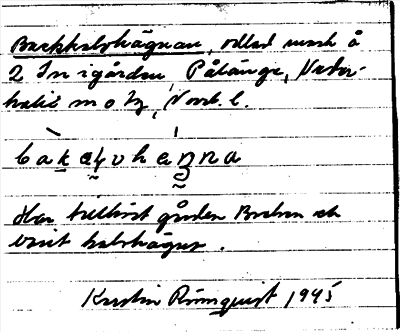 Backkalvhägnan, odlad mark å
2 In i gården Påtänge, Neder-
kalix m o tz, Norrb. l.
bakalvhɛŋna
Har tillhört gården Backen och
varit kalvhägn.
Kerstin Rönnquist 1945